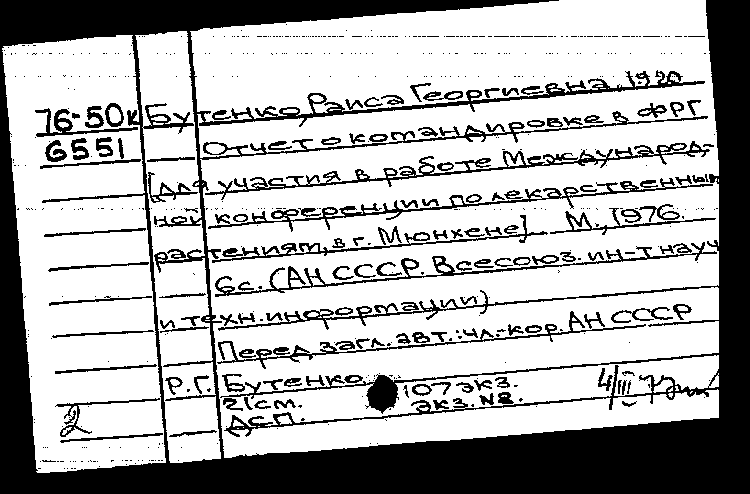 76-50к Бутенко, Раиса Георгиевна, 1920
6551 Отчет о командировке в ФРГ
[для участия в работе Международ-
ной конференции по лекарственным
растениям, в г. Мюнхене]. М., 1976.
6с. (АН СССР. Всесоюз. ин-т науч
и техн. информации).
Перед загл. авт.: чл.-кор. АН СССР
Р.Г. Бутенко
21см. 107 экз.
ДСП. экз. №2.
4/III
2